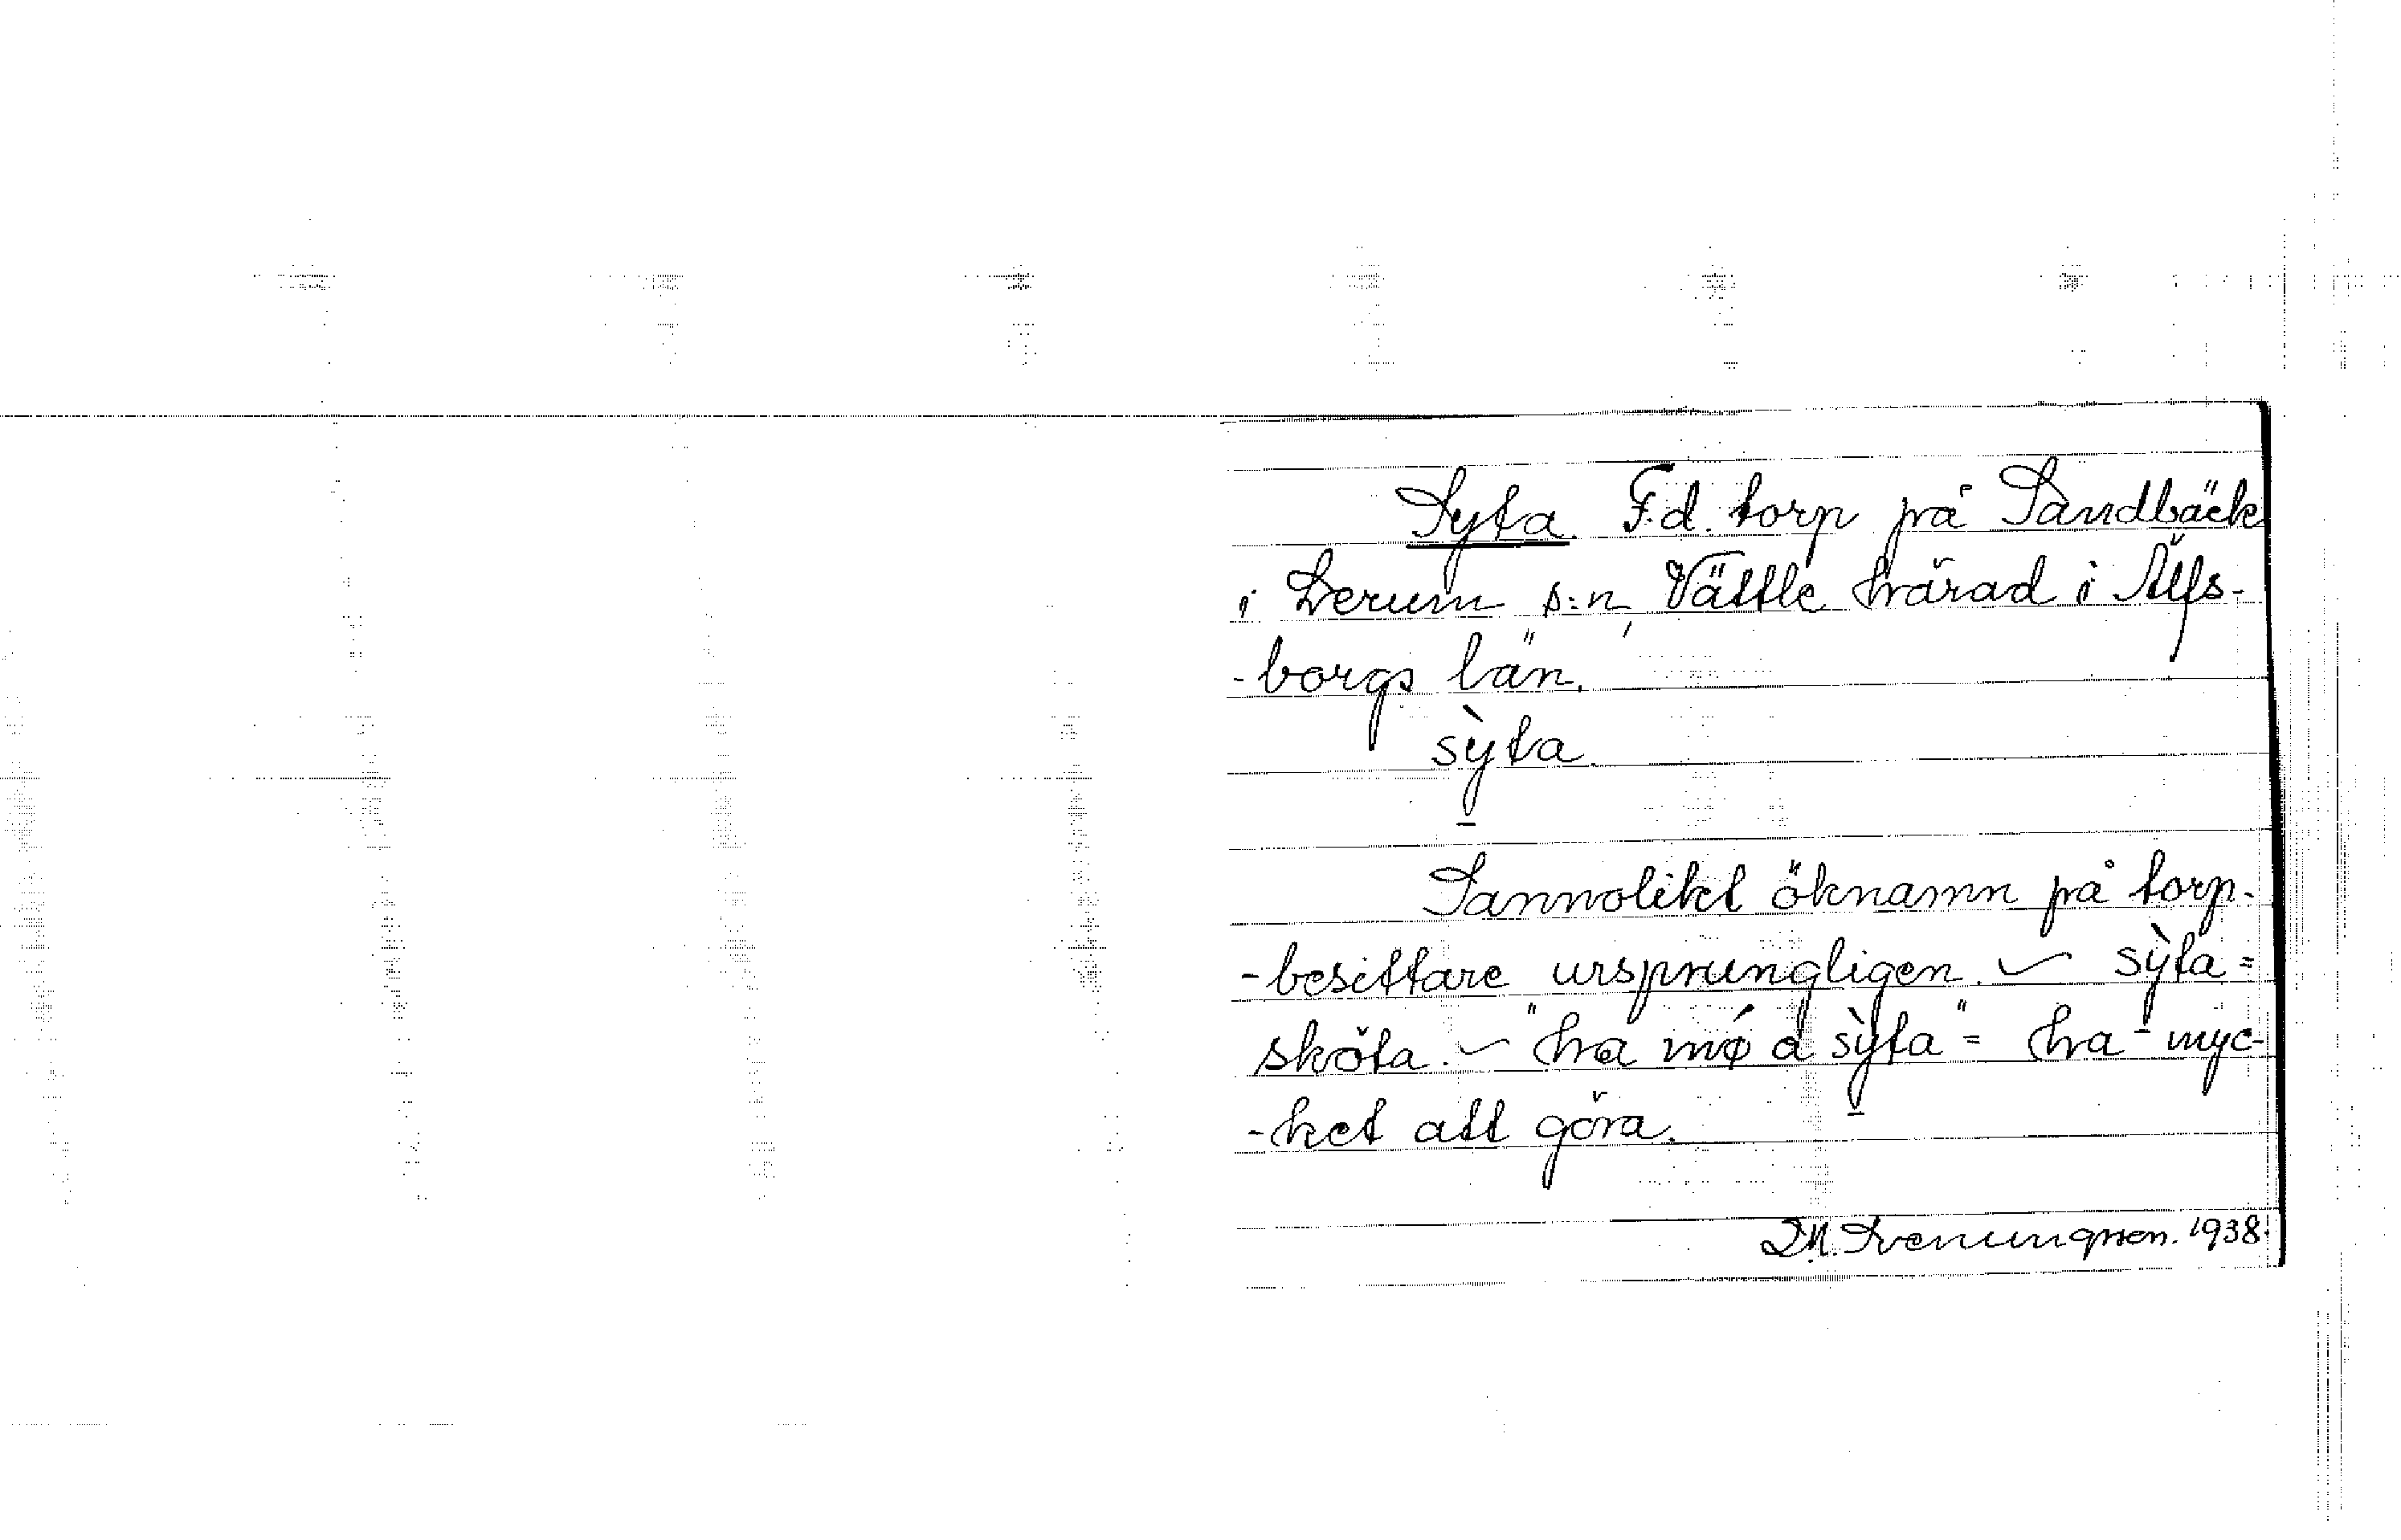 Syta. F.d. torp på Sandbäck
i Lerum s:n, Vättle härad i Älfs-
-borgs län.
sỳta.
Sannolikt öknamn på torp-
-besittare ursprungligen. ~ sỳta =
sköta. ~ "ha mǿ å sỳta" = ha myc-
-ket att göra.
D.N. Svenungsson. 1938.